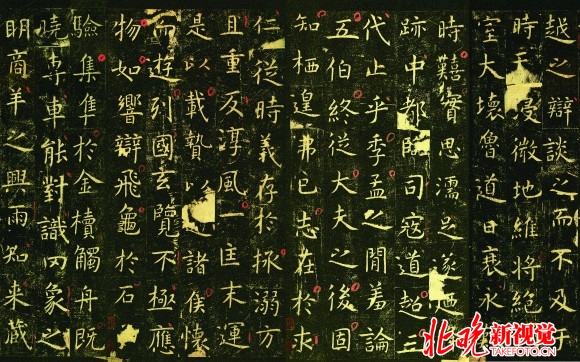 越之辯談之而不及
時天浸微地維將絶
室大壞魯道日衰永
時囏實思濡足遂
跡中都臨司寇道超三
代止乎季孟之閒羞論
五伯終從大夫之後固
知栖遑弗已志在於求
仁從時義存於拯溺方
且重反淳風一匡末運
是以載贄以諸侯懷
而遊列國玄覽不極應
物如響辯飛龜於石
驗集隼於金櫝觸舟既
曉專車能對識罔象之
明商羊之興雨知来藏
北晚新视觉
TAKEFOTO.CN